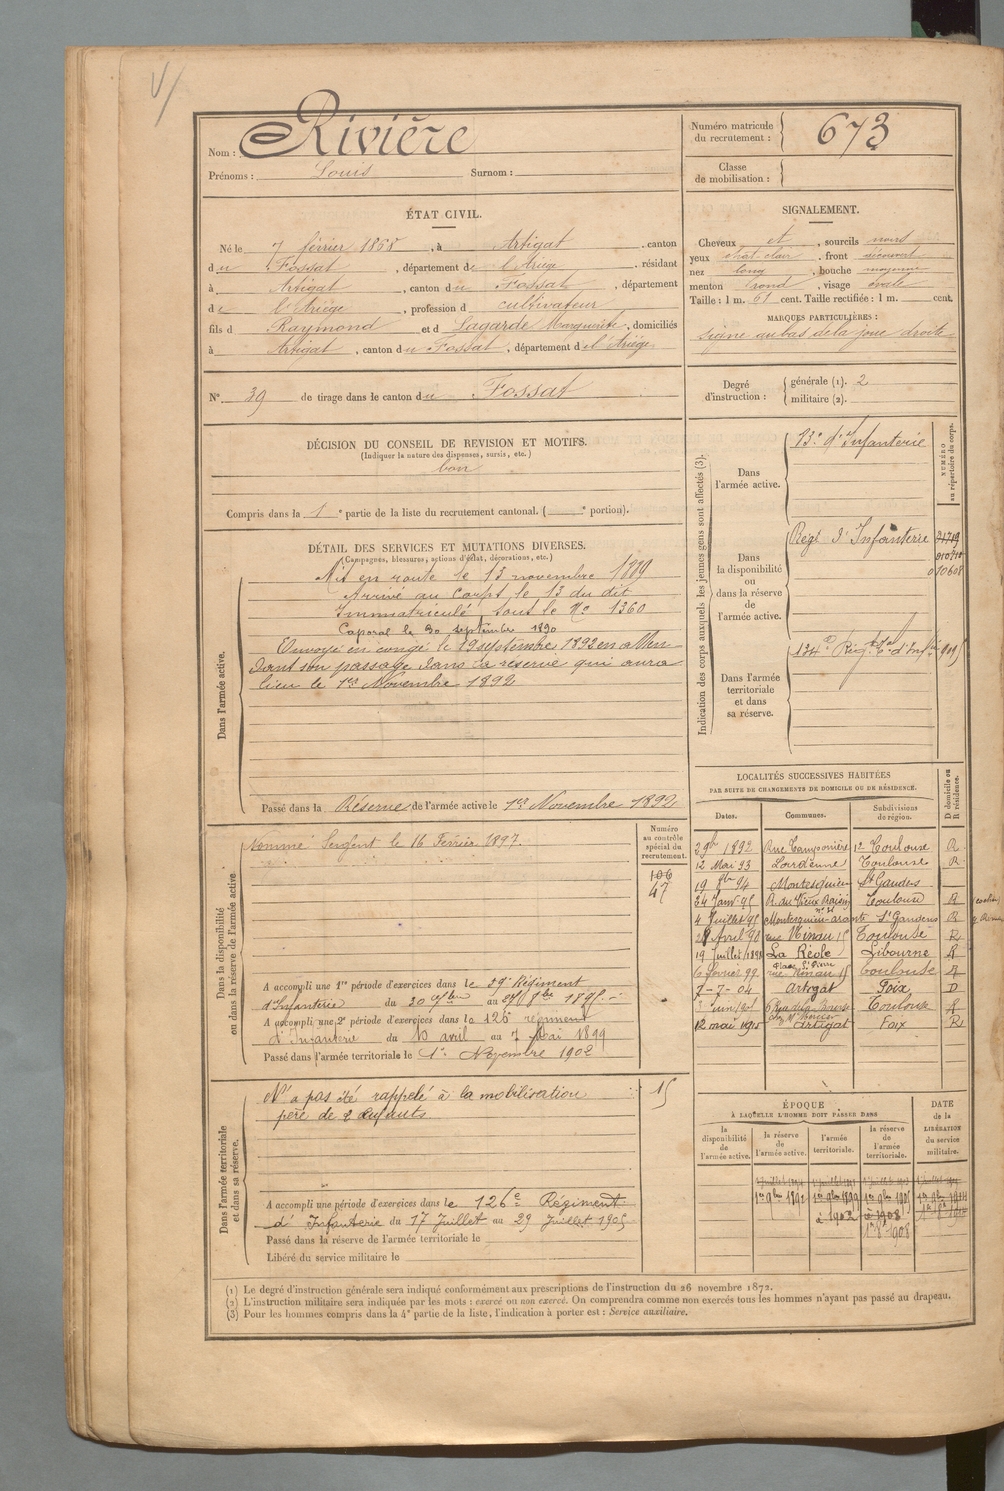 V/
Nom : Rivière
Prénoms : Louis Surnom :
Numéro matricule du recrutement : 673
Classe de mobilisation :
ÉTAT CIVIL.
Né le 7 février 1868, à Artigat, canton
du Fossat, département de l'Ariège, résidant
à Artigat, canton du Fossat, département
de l'Ariège, profession de cultivateur
fils d Raymond et d Lagarde Marguerite, domiciliés
à Artigat, canton du Fossat, département de l'Ariège
SIGNALEMENT.
Cheveux et, sourcils noirs
yeux chat. clair, front découvert
nez long, bouche moyenne
menton rond, visage ovale
Taille : 1 m. 61 cent. Taille rectifiée : 1 m. cent.
MARQUES PARTICULIÈRES :
signe au bas de la joue droite
N° 39 de tirage dans le canton du Fossat
Degré d'instruction : générale (1). 2
militaire (2).
DÉCISION DU CONSEIL DE REVISION ET MOTIFS.
(Indiquer la nature des dispenses, sursis, etc.)
bon
Compris dans la 1e partie de la liste du recrutement cantonal. ( e portion).
DÉTAIL DES SERVICES ET MUTATIONS DIVERSES.
(Campagnes, blessures, actions d'éclat, décorations, etc.)
Dans l'armée active.
Mis en route le 13 novembre 1889
Arrivé au Corps le 13 du dit
Immatriculé sous le No 1360
Caporal le 30 septembre 1890
Envoyé en congé le 19 septembre 1892 en atten
dant son passage dans la réserve qui aura
lieu le 1er Novembre 1892
Passé dans la Réserve de l'armée active le 1er Novembre 1892
Indication des corps auxquels les jeunes gens sont affectés (3).
NUMÉRO au répertoire du corps.
Dans l'armée active.
d'Infanterie
Dans la disponibilité ou dans la réserve de l'armée active.
Régt d'Infanterie
010608
Dans l'armée territoriale et dans sa réserve.
134e Régt Tal d'Infie
Dans la disponibilité ou dans la réserve de l'armée active
Numéro au contrôle spécial du recrutement.
106
47
Nommé Sergent le 16 Février 1897.
A accompli une 1re période d'exercices dans le 59e Régiment
d'Infanterie du 30 au 1895
A accompli une 2e période d'exercices dans le 126e régiment
d'Infanterie du avril au 7 Mai 1899
Passé dans l'armée territoriale le 1er Novembre 1902
LOCALITÉS SUCCESSIVES HABITÉES
PAR SUITE DE CHANGEMENTS DE DOMICILE OU DE RÉSIDENCE.
Dates. Communes. Subdivisions de région. D domicile ou R résidence.
9bre 1892 Rue Tamponière 12 Toulouse R
12 Mai 93 Toulouse R
19 94 Montesquieu St Gaudens
24 Janv 95 R. du Vieux Raisin Toulouse R
4 Juillet 95 Montesquieu St Gaudens R
Avril 98 rue Ninau 15 Toulouse R
19 Juillet 1898 La Réole Libourne R
6 février 99 rue Ninau 15 Toulouse R
7-7-04 Artigat Foix D
Toulouse R
12 mai 1915 Artigat Foix R
Dans l'armée territoriale et dans sa réserve.
N'a pas été rappelé à la mobilisation
père de enfants
15
A accompli une période d'exercices dans le 126e Régiment
d'Infanterie du 17 Juillet au 29 Juillet 1905
Passé dans la réserve de l'armée territoriale le
Libéré du service militaire le
ÉPOQUE
À LAQUELLE L'HOMME DOIT PASSER DANS
la disponibilité de l'armée active.
la réserve de l'armée active.
l'armée territoriale.
la réserve de l'armée territoriale.
DATE de la LIBÉRATION du service militaire.
1er 9bre 1892 1er 9bre 1899
à 1902 à 1908
1908
(1) Le degré d'instruction générale sera indiqué conformément aux prescriptions de l'instruction du 26 novembre 1872.
(2) L'instruction militaire sera indiquée par les mots : exercé ou non exercé. On comprendra comme non exercés tous les hommes n'ayant pas passé au drapeau.
(3) Pour les hommes compris dans la 4e partie de la liste, l'indication à porter est : Service auxiliaire.